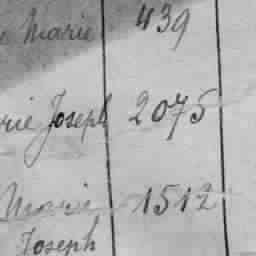 Marie 439
Joseph 2075
Marie 1512
Joseph